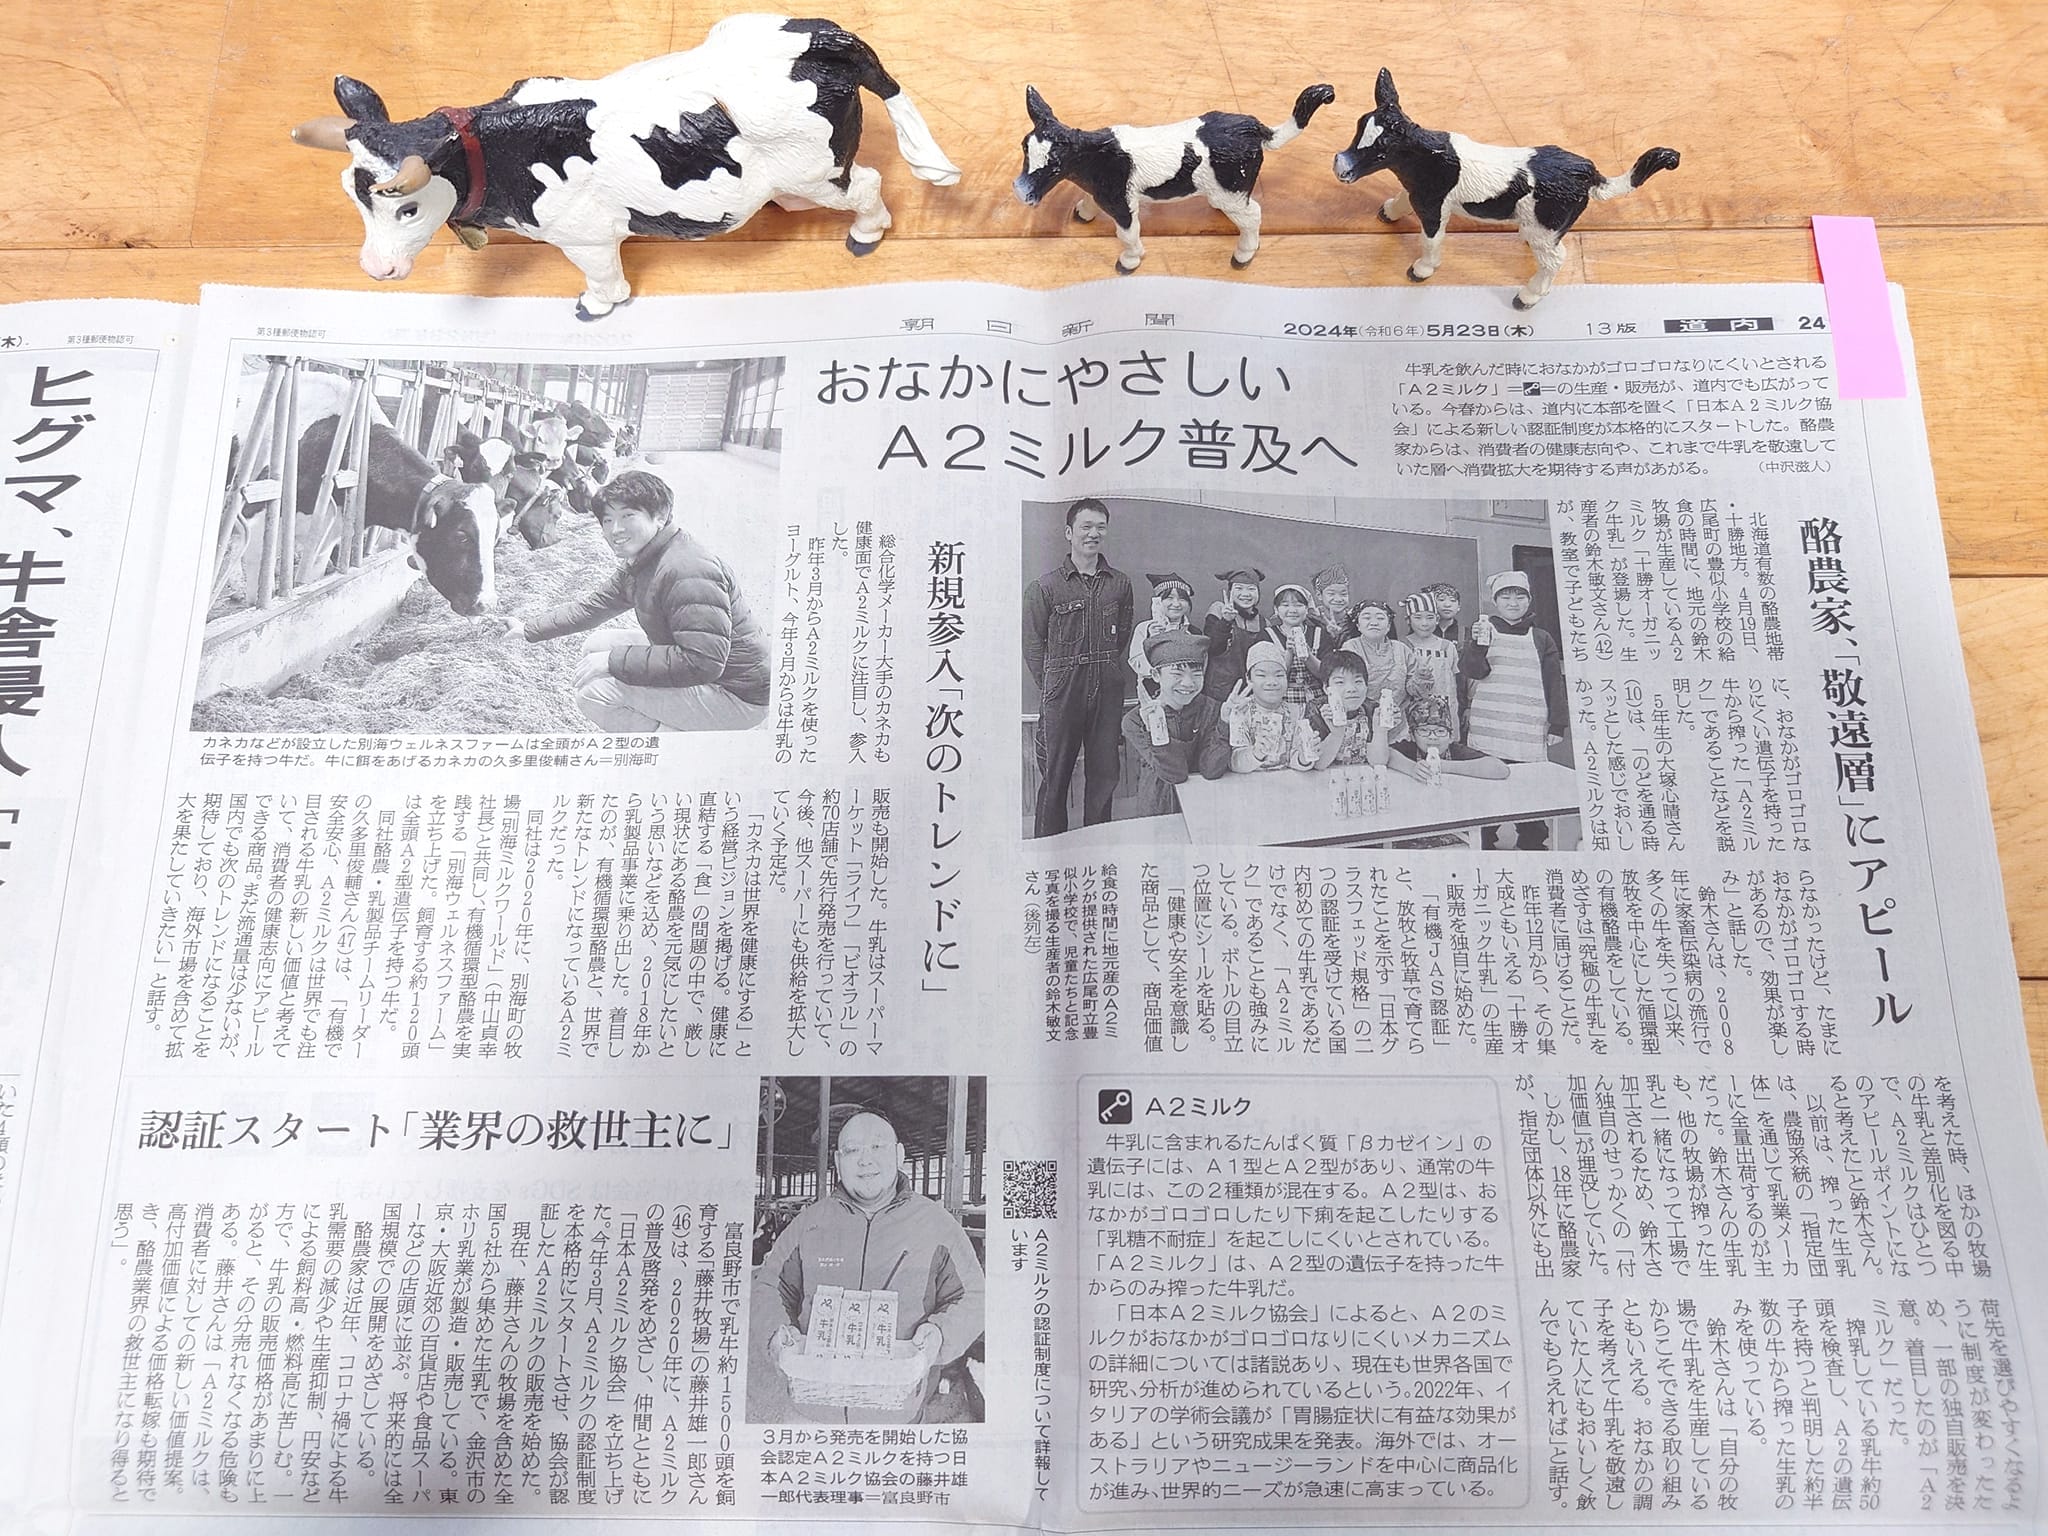 木）
第3種郵便物認可
ヒグマ、牛舎侵入
第3種郵便物認可
朝日新聞
2024年(令和6年)5月23日(木)
13版
道内
24
おなかにやさしい
A2ミルク普及へ
牛乳を飲んだ時におなかがゴロゴロなりにくいとされる
「A2ミルク」＝＝の生産・販売が、道内でも広がって
いる。今春からは、道内に本部を置く「日本A2ミルク協
会」による新しい認証制度が本格的にスタートした。酪農
家からは、消費者の健康志向や、これまで牛乳を敬遠して
いた層へ消費拡大を期待する声があがる。　（中沢滋人）
酪農家、「敬遠層」にアピール
北海道有数の酪農地帯
・十勝地方。4月19日、
広尾町の豊似小学校の給
食の時間に、地元の鈴木
牧場が生産しているA2
ミルク「十勝オーガニッ
ク牛乳」が登場した。生
産者の鈴木敏文さん(42)
が、教室で子どもたち
に、おなかがゴロゴロな
りにくい遺伝子を持った
牛から搾った「A2ミル
ク」であることなどを説
明した。
5年生の大塚心晴さん
(10)は、「のどを通る時
スッとした感じでおいし
かった。A2ミルクは知
らなかったけど、たまに
おなかがゴロゴロする時
があるので、効果が楽し
み」と話した。
鈴木さんは、2008
年に家畜伝染病の流行で
多くの牛を失って以来、
放牧を中心にした循環型
の有機酪農をしている。
めざすは「究極の牛乳」を
消費者に届けることだ。
昨年12月から、その集
大成ともいえる「十勝オ
ーガニック牛乳」の生産
・販売を独自に始めた。
「有機JAS認証」
と、放牧と牧草で育てら
れたことを示す「日本グ
ラスフェッド規格」の二
つの認証を受けている国
内初めての牛乳であるだ
けでなく、「A2ミル
ク」であることも強みに
している。ボトルの目立
つ位置にシールを貼る。
「健康や安全を意識し
た商品として、商品価値
を考えた時、ほかの牧場
の牛乳と差別化を図る中
で、A2ミルクはひとつ
のアピールポイントにな
ると考えた」と鈴木さん。
以前は、搾った生乳
は、農協系統の「指定団
体」を通じて乳業メーカ
ーに全量出荷するのが主
だった。鈴木さんの生乳
も、他の牧場が搾った生
乳と一緒になって工場で
加工されるため、鈴木さ
ん独自のせっかくの「付
加価値」が埋没していた。
しかし、18年に酪農家
が、指定団体以外にも出
荷先を選びやすくなるよ
うに制度が変わったた
め、一部の独自販売を決
意。着目したのが「A2
ミルク」だった。
搾乳している乳牛約50
頭を検査し、A2の遺伝
子を持つと判明した約半
数の牛から搾った生乳の
みを使っている。
鈴木さんは「自分の牧
場で牛乳を生産している
からこそできる取り組み
ともいえる。おなかの調
子を考えて牛乳を敬遠し
ていた人にもおいしく飲
んでもらえれば」と話す。
給食の時間に地元産のA2ミ
ルクが提供された広尾町立豊
似小学校で、児童たちと記念
写真を撮る生産者の鈴木敏文
さん（後列左）
新規参入「次のトレンドに」
総合化学メーカー大手のカネカも
健康面でA2ミルクに注目し、参入
した。
昨年3月からA2ミルクを使った
ヨーグルト、今年3月からは牛乳の
販売も開始した。牛乳はスーパーマ
ーケット「ライフ」「ビオラル」の
約70店舗で先行発売を行っていて、
今後、他スーパーにも供給を拡大し
ていく予定だ。
「カネカは世界を健康にする」と
いう経営ビジョンを掲げる。健康に
直結する「食」の問題の中で、厳し
い現状にある酪農を元気にしたいと
いう思いなどを込め、2018年か
ら乳製品事業に乗り出した。着目し
たのが、有機循環型酪農と、世界で
新たなトレンドになっているA2ミ
ルクだった。
同社は2020年に、別海町の牧
場「別海ミルクワールド」（中山真幸
社長）と共同し、有機循環型酪農を実
践する「別海ウェルネスファーム」
を立ち上げた。飼育する約120頭
は全頭A2型遺伝子を持つ牛だ。
同社酪農・乳製品チームリーダー
の久多里俊輔さん(47)は、「有機で
安全安心、A2ミルクは世界でも注
目される牛乳の新しい価値と考えて
いて、消費者の健康志向にアピール
できる商品。まだ流通量は少ないが、
国内でも次のトレンドになることを
期待しており、海外市場を含めて拡
大を果たしていきたい」と話す。
カネカなどが設立した別海ウェルネスファームは全頭がA2型の遺
伝子を持つ牛だ。牛に餌をあげるカネカの久多里俊輔さん＝別海町
認証スタート「業界の救世主に」
富良野市で乳牛約1500頭を飼
育する「藤井牧場」の藤井雄一郎さん
(46)は、2020年に、A2ミルク
の普及啓発をめざし、仲間とともに
「日本A2ミルク協会」を立ち上げ
た。今年3月、A2ミルクの認証制度
を本格的にスタートさせ、協会が認
証したA2ミルクの販売を始めた。
現在、藤井さんの牧場を含めた全
国5社から集めた生乳で、金沢市の
ホリ乳業が製造・販売している。東
京・大阪近郊の百貨店や食品スーパ
ーなどの店頭に並ぶ。将来的には全
国規模での展開をめざしている。
酪農家は近年、コロナ禍による牛
乳需要の減少や生産抑制、円安など
による飼料高・燃料高に苦しむ。一
方で、牛乳の販売価格があまりに上
がると、その分売れなくなる危険も
ある。藤井さんは「A2ミルクは、
消費者に対しての新しい価値提案。
高付加価値による価格転嫁も期待で
き、酪農業界の救世主になり得ると
思う」。
3月から発売を開始した協
会認定A2ミルクを持つ日
本A2ミルク協会の藤井雄
一郎代表理事＝富良野市
A2ミルクの認証制度について詳報して
います
A2ミルク
牛乳に含まれるたんぱく質「βカゼイン」の
遺伝子には、A1型とA2型があり、通常の牛
乳には、この2種類が混在する。A2型は、お
なかがゴロゴロしたり下痢を起こしたりする
「乳糖不耐症」を起こしにくいとされている。
「A2ミルク」は、A2型の遺伝子を持った牛
からのみ搾った牛乳だ。
「日本A2ミルク協会」によると、A2のミ
ルクがおなかがゴロゴロなりにくいメカニズム
の詳細については諸説あり、現在も世界各国で
研究、分析が進められているという。2022年、イ
タリアの学術会議が「胃腸症状に有益な効果が
ある」という研究成果を発表。海外では、オー
ストラリアやニュージーランドを中心に商品化
が進み、世界的ニーズが急速に高まっている。